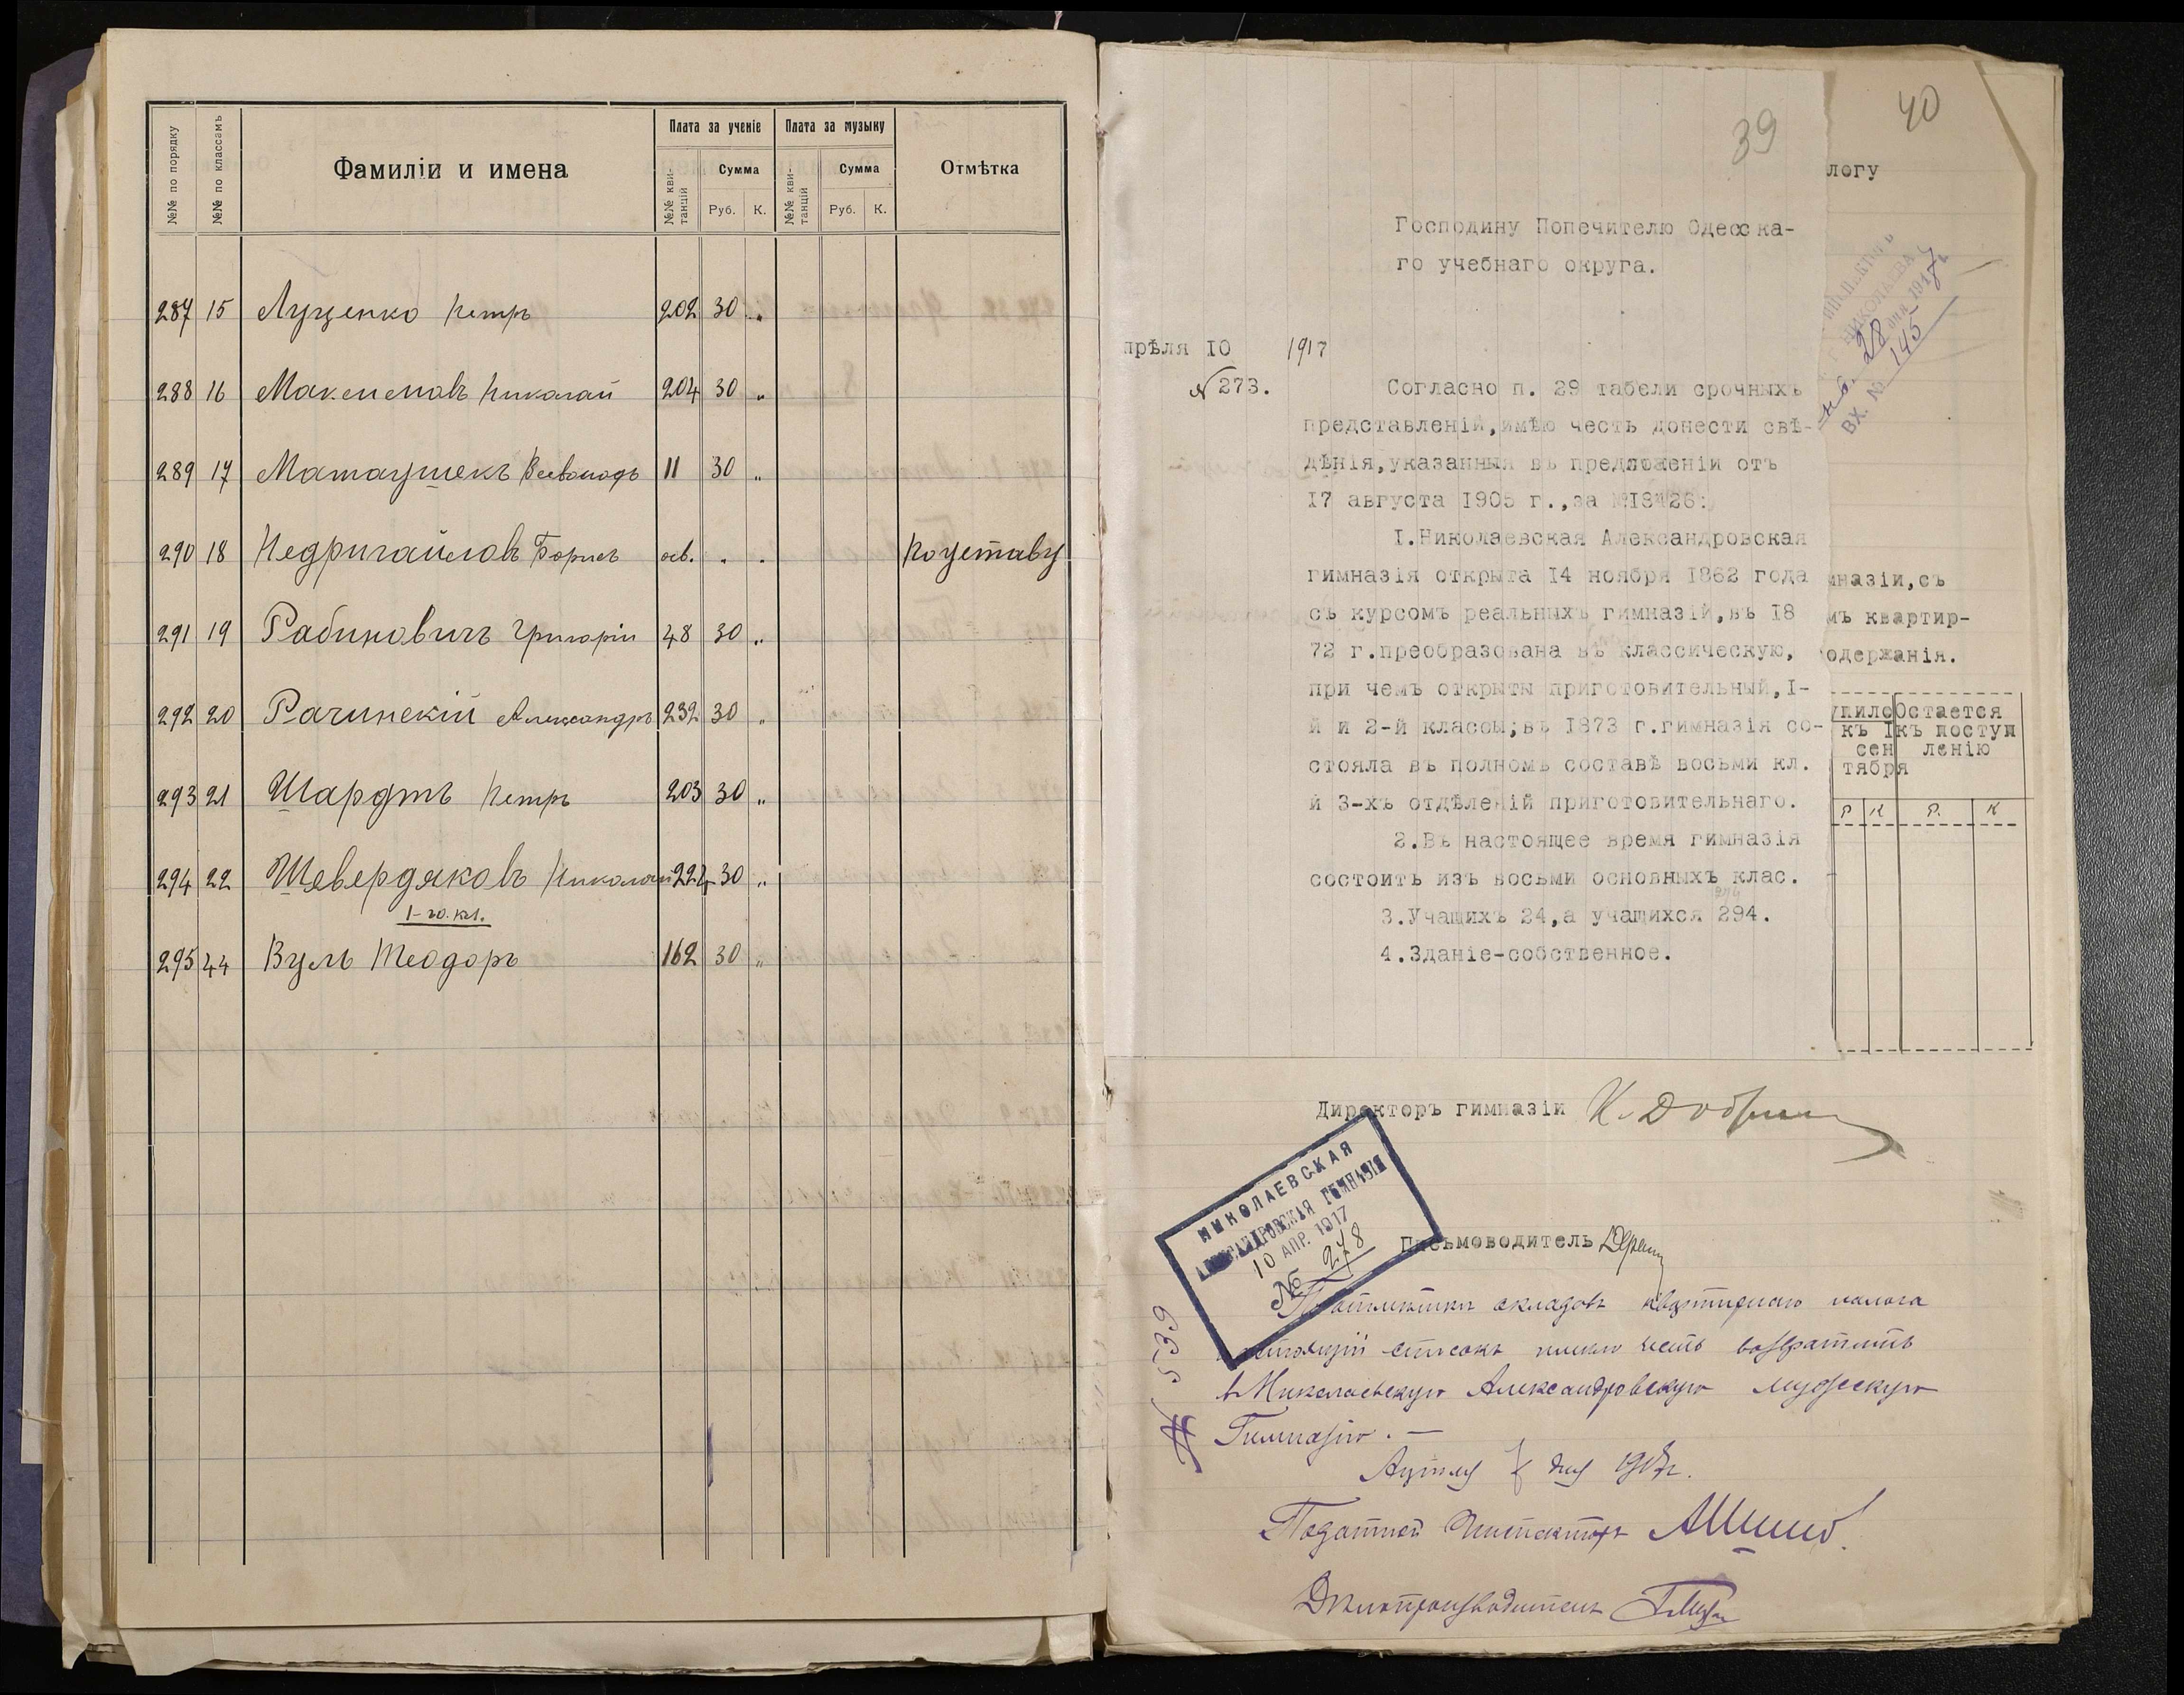 №№ по порядку
№№ по классамъ
Фамиліи и имена
Плата за ученіе
Плата за музыку
Отмѣтка
№№ кви-
танцій
Сумма
Руб. К.
№№ кви-
танцій
Сумма
Руб. К.
287 15 Луценко Петръ 202 30 „
288 16 Максимовъ Николай 204 30 „
289 17 Матаушекъ Всеволодъ 11 30 „
290 18 Недригайловъ Борисъ осв. „ „ По уставу
291 19 Рабиновичъ Григорій 48 30 „
292 20 Рачинскій Александръ 232 30 „
293 21 Шардтъ Петръ 203 30 „
294 22 Шевердяковъ Николай 224 30 „
1-го. кл.
295 44 Вуль Теодоръ 162 30 „
39
Господину Попечителю Одесска-
го учебнаго округа.
прѣля 10 1917
№ 273.
Согласно п. 29 табели срочныхъ
представленій,имѣю честь донести свѣ-
дѣнія,указанныя въ предложеніи отъ
17 августа 1905 г.,за №18426:
I.Николаевская Александровская
гимназія открыта 14 ноября 1862 года
съ курсомъ реальныхъ гимназій,въ 18
72 г.преобразована въ классическую,
при чемъ открыты приготовительный,I-
й и 2-й классы;въ 1873 г.гимназія со-
стояла въ полномъ составѣ восьми кл.
й 3-хъ отдѣленій приготовительнаго.
2.Въ настоящее время гимназія
состоитъ изъ восьми основныхъ клас.
3.Учащихъ 24,а учащихся 294.
4.Зданіе-собственное.
40
логу
28
ВХ. № 145
мназіи,съ
мъ квартир-
одержанія.
упило Остается
къ I къ поступ
сен ленію
тября
Р К Р. К
Директоръ гимназіи
НИКОЛАЕВСКАЯ
АЛЕКСАНДРОВСКАЯ ГИМНАЗІЯ
10 АПР. 1917
№ 278
Письмоводитель
окладовъ квартирнаго налога
настоящій списокъ имѣю честь возвратить
въ Николаевскую Александровскую мужскую
Гимназію. —
№ 539
дня 1917г.
Податной Инспекторъ
Дѣлопроизводитель